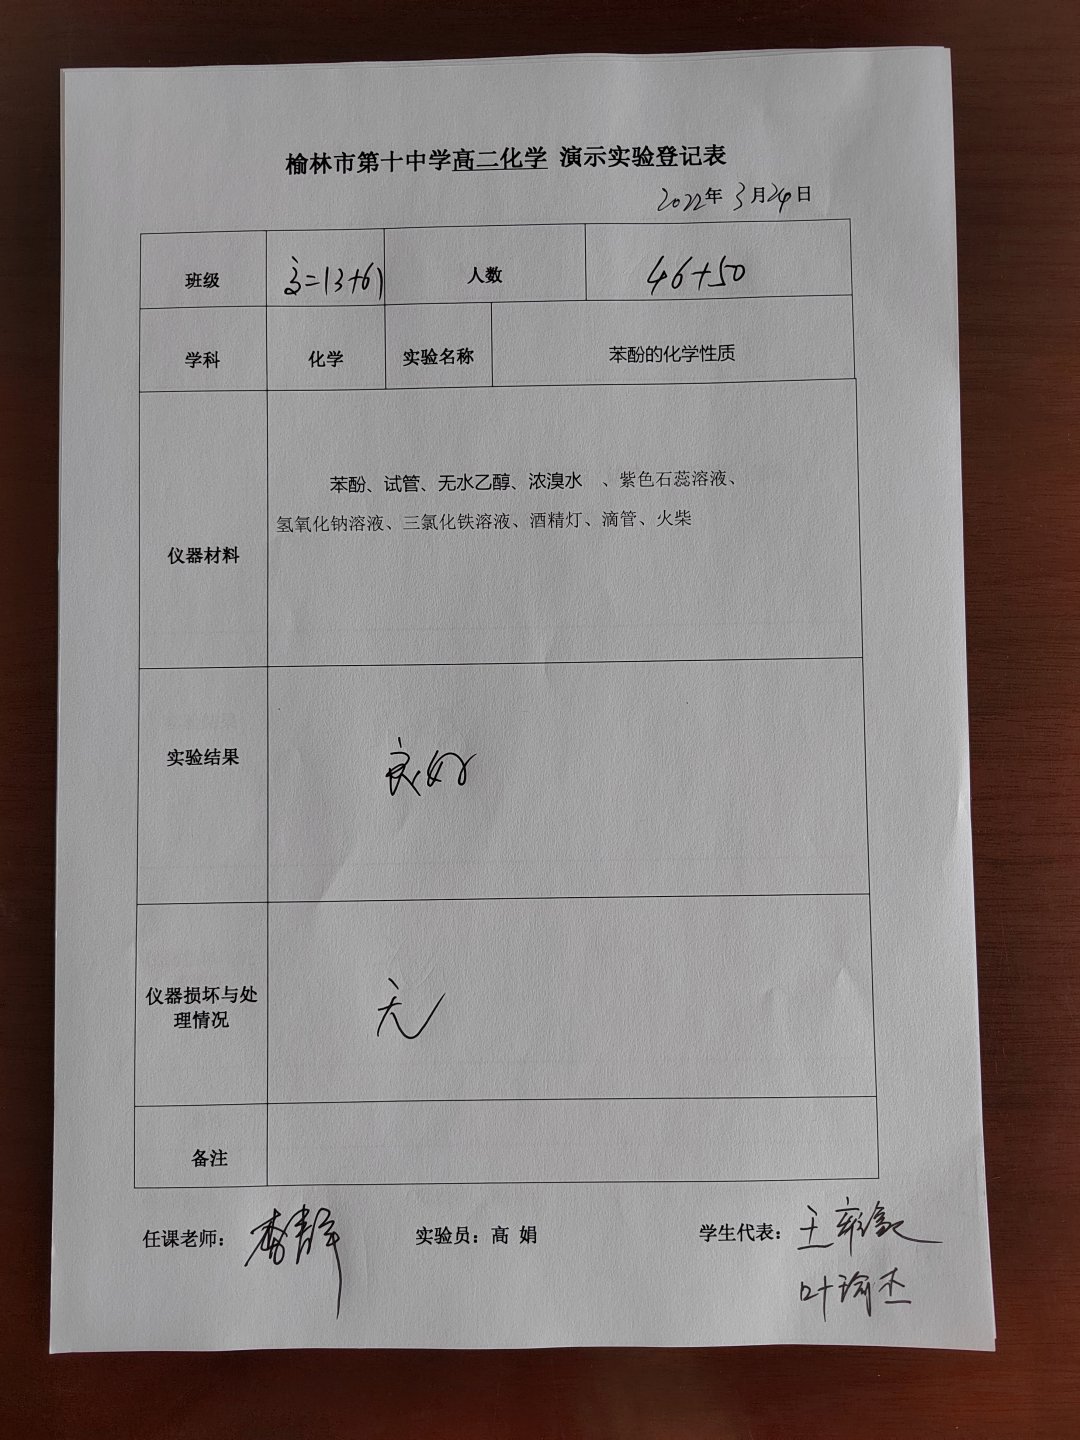 榆林市第十中学高二化学 演示实验登记表
2022年 3月24日
班级 高二(3+6) 人数 46+50
学科 化学 实验名称 苯酚的化学性质
苯酚、试管、无水乙醇、浓溴水 、紫色石蕊溶液、
氢氧化钠溶液、三氯化铁溶液、酒精灯、滴管、火柴
仪器材料
实验结果 良好
仪器损坏与处
理情况
无
备注
任课老师： 李静 实验员：高 娟 学生代表： 王
叶瑜杰